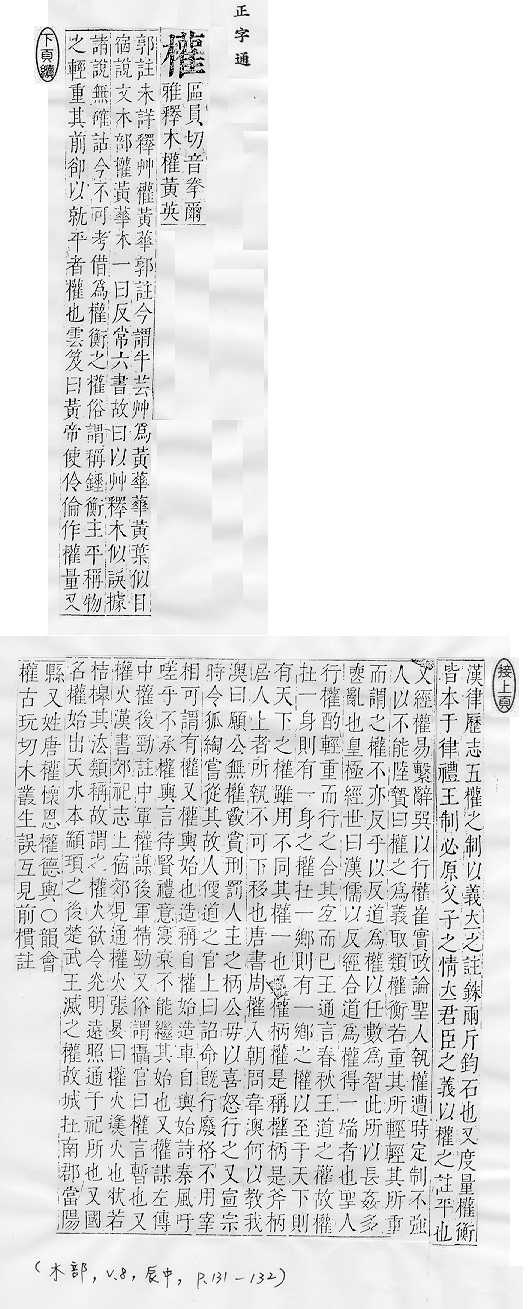 正字通
權
區員切音拳爾
雅釋木權黃英
郭註未詳釋艸權黃華郭註今謂牛芸艸爲黃華華黃葉似目
宿說文木部權黃華木一曰反常六書故曰以艸釋木似誤據
諸說無確詁今不可考借爲權衡之權俗謂稱錘衡主平稱物
之輕重其前卻以就平者權也雲笈曰黃帝使伶倫作權量又
下頁續
接上頁
漢律歷志五權之制以義大之註銖兩斤鈞石也又度量權衡
皆本于律禮王制必原父子之情大君臣之義以權之註平也
又經權易繫辭巽以行權崔實政論聖人執權遭時定制不強
人以不能陸贄曰權之爲義取類權衡若重其所輕輕其所重
而謂之權不亦反乎以反道爲權以任數爲智此所以長姦多
喪亂也皇極經世曰漢儒以反經合道爲權得一端者也聖人
行權酌輕重而行之合其宜而已王通言春秋王道之權故權
在一身則有一身之權在一鄉則有一鄉之權以至于天下則
有天下之權雖用不同其權一也又權柄權是稱權柄是斧柄
居人上者所執不可下移也唐書周權入朝問韋澳何以教我
澳曰願公無權爵賞刑罰人主之柄公毋以喜怒行之又宣宗
時令狐綯嘗從其故人便道之官上曰詔命旣行廢格不用宰
相可謂有權又權輿始也造稱自權始造車自輿始詩秦風吁
嗟乎不承權輿言待賢禮意寖衰不能繼其始也又權謀左傳
中權後勁註中軍權謀後軍精勁又俗謂攝官曰權言暫也又
權火漢書郊祀志上宿郊見通權火張晏曰權火烽火也狀若
桔橰其法類稱故謂之權火欲令光明遠照通于祀所也又國
名權始出天水本顓頊之後楚武王滅之權故城在南郡當陽
縣又姓唐權懷恩權德輿○韻會
權古玩切木叢生誤互見前慣註
(木部, v.8, 辰中, p.131-132)